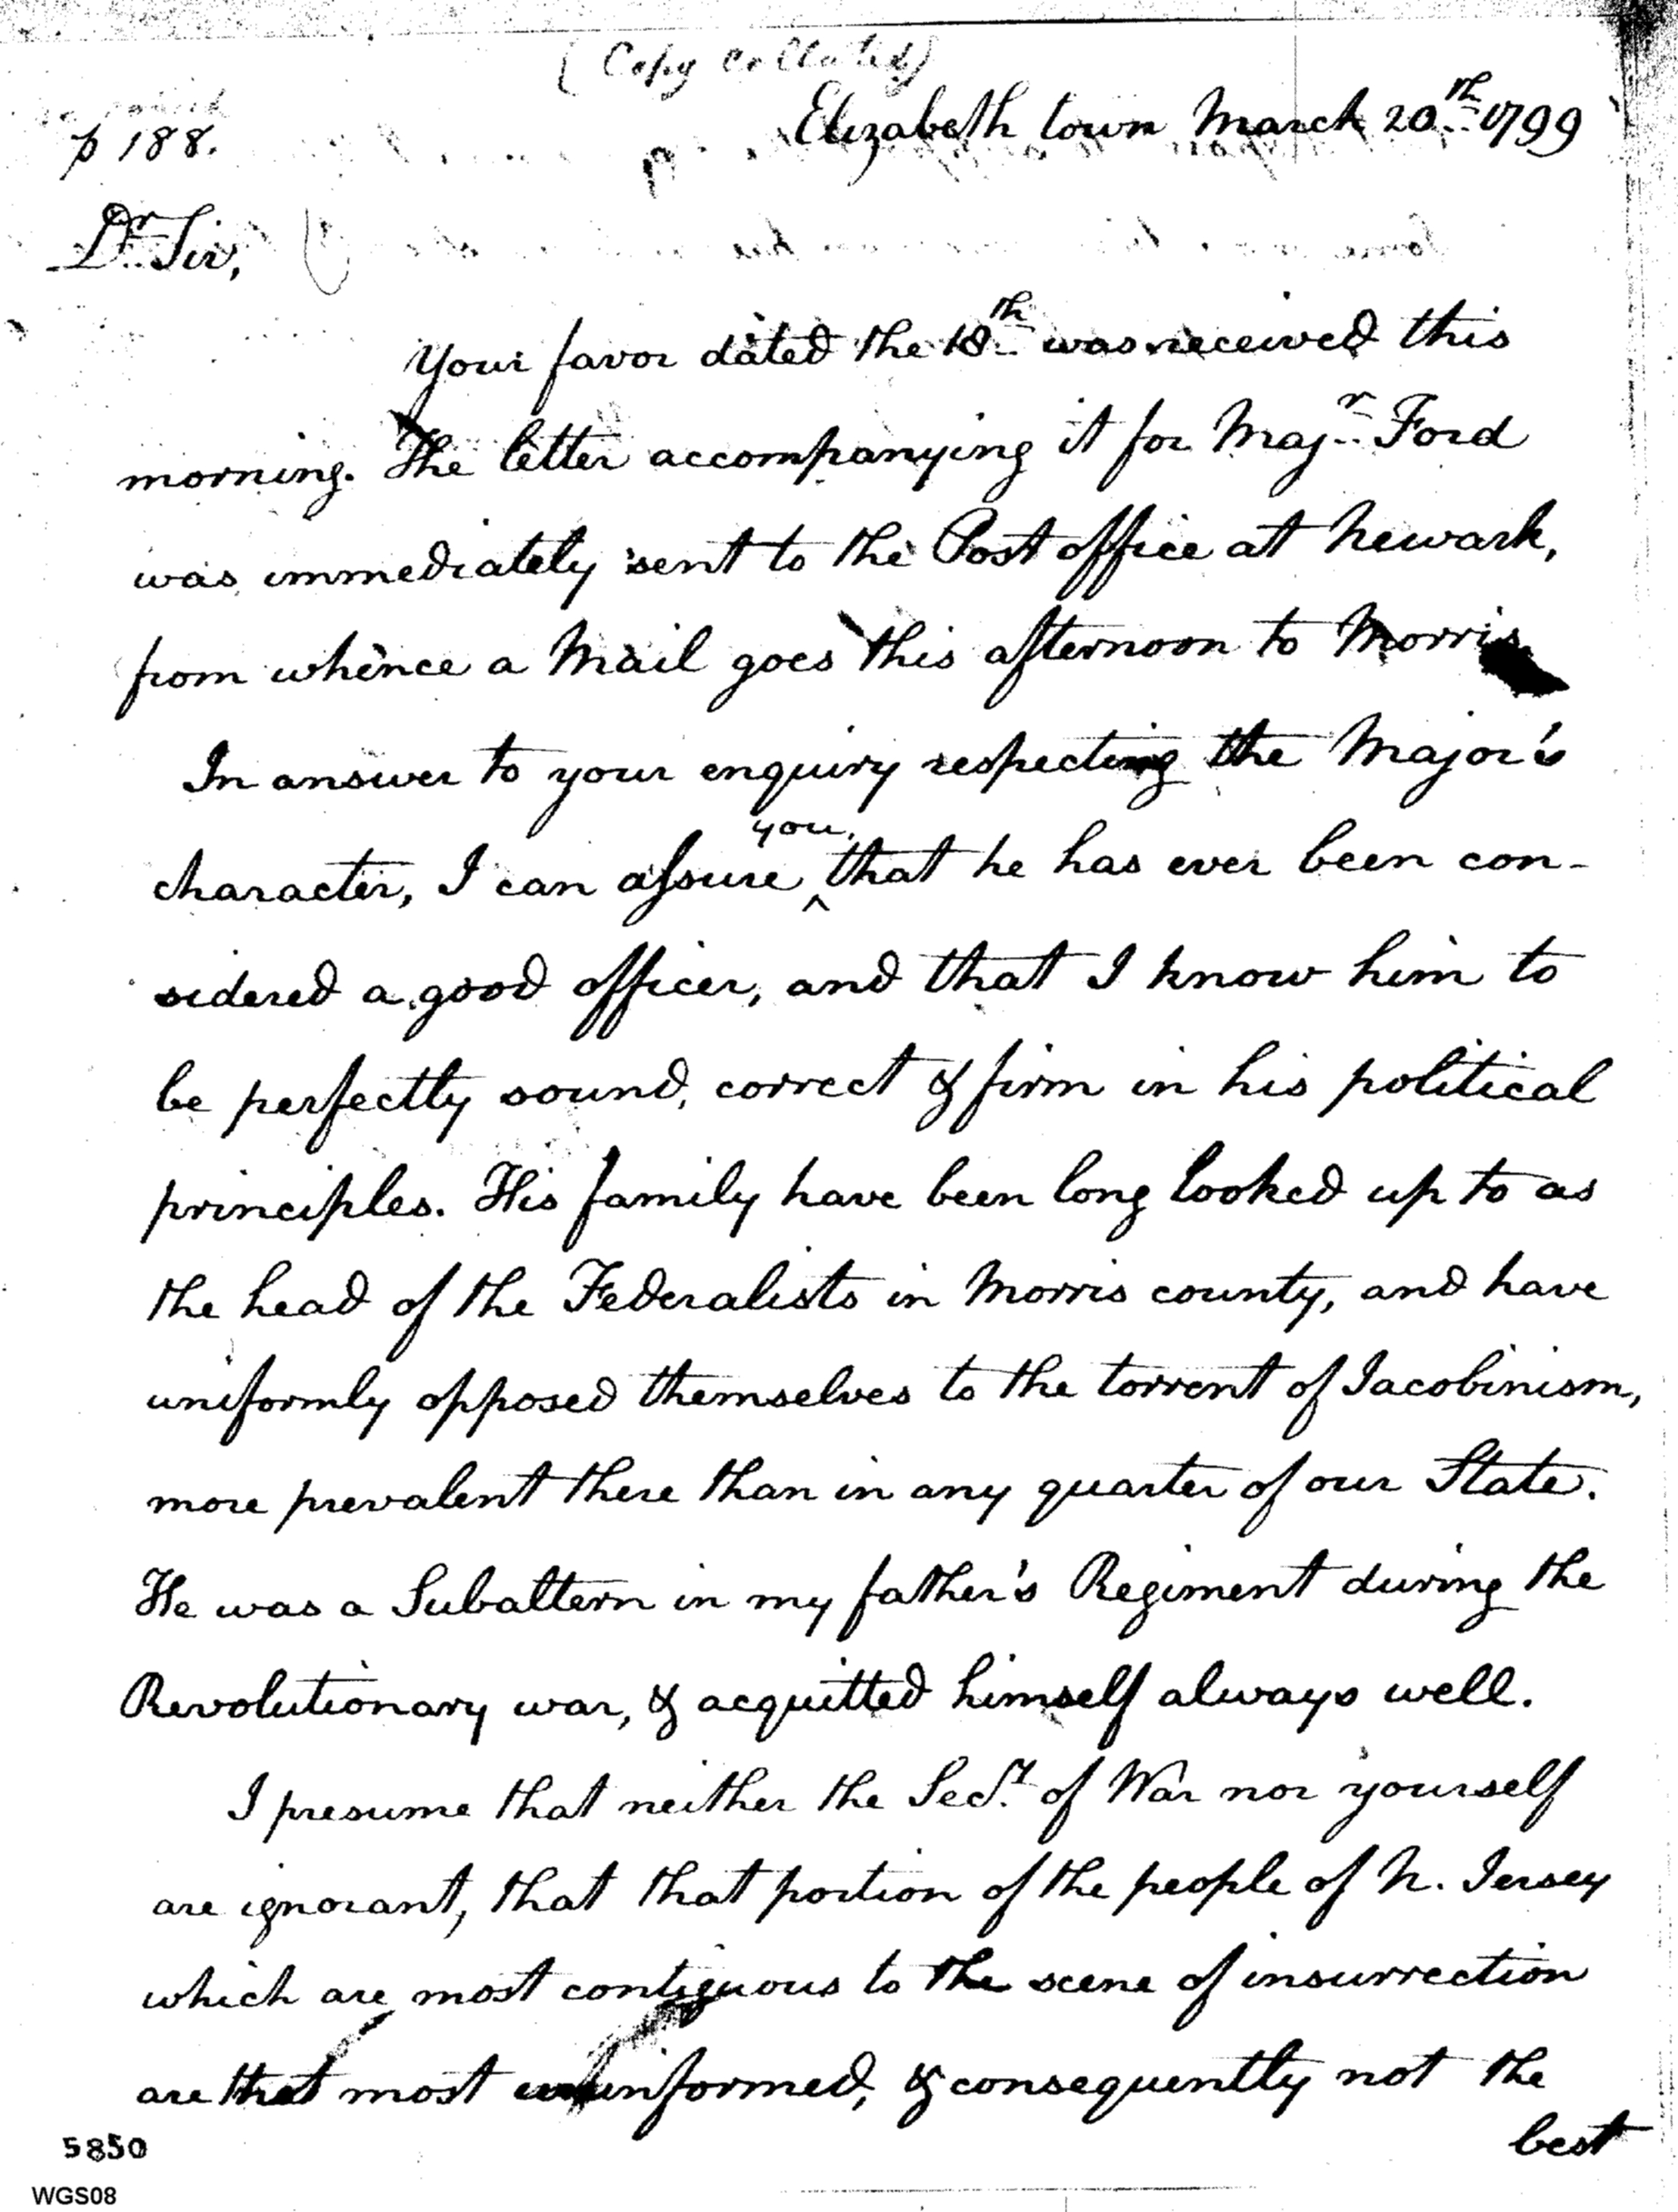 (Copy collated)
p 188.
Elizabeth town March 20th 1799
Dr Sir,
Your favor dated the 18th was received this
morning. The letter accompanying it for Majr Ford
was immediately sent to the Post office at Newark,
from whence a Mail goes this afternoon to Morris
In answer to your enquiry respecting the Major's
character, I can assure you, that he has ever been con-
sidered a good officer, and that I know him to
be perfectly sound, correct & firm in his political
principles. His family have been long looked up to as
the head of the Federalists in Morris county, and have
uniformly opposed themselves to the torrent of Jacobinism,
more prevalent there than in any quarter of our State.
He was a Subaltern in my father's Regiment during the
Revolutionary war, & acquitted himself always well.
I presume that neither the Secy. of War nor yourself
are ignorant, that that portion of the people of N. Jersey
which are most contiguous to the scene of insurrection
are that most uninformed, & consequently not the
best
5850
WGS08